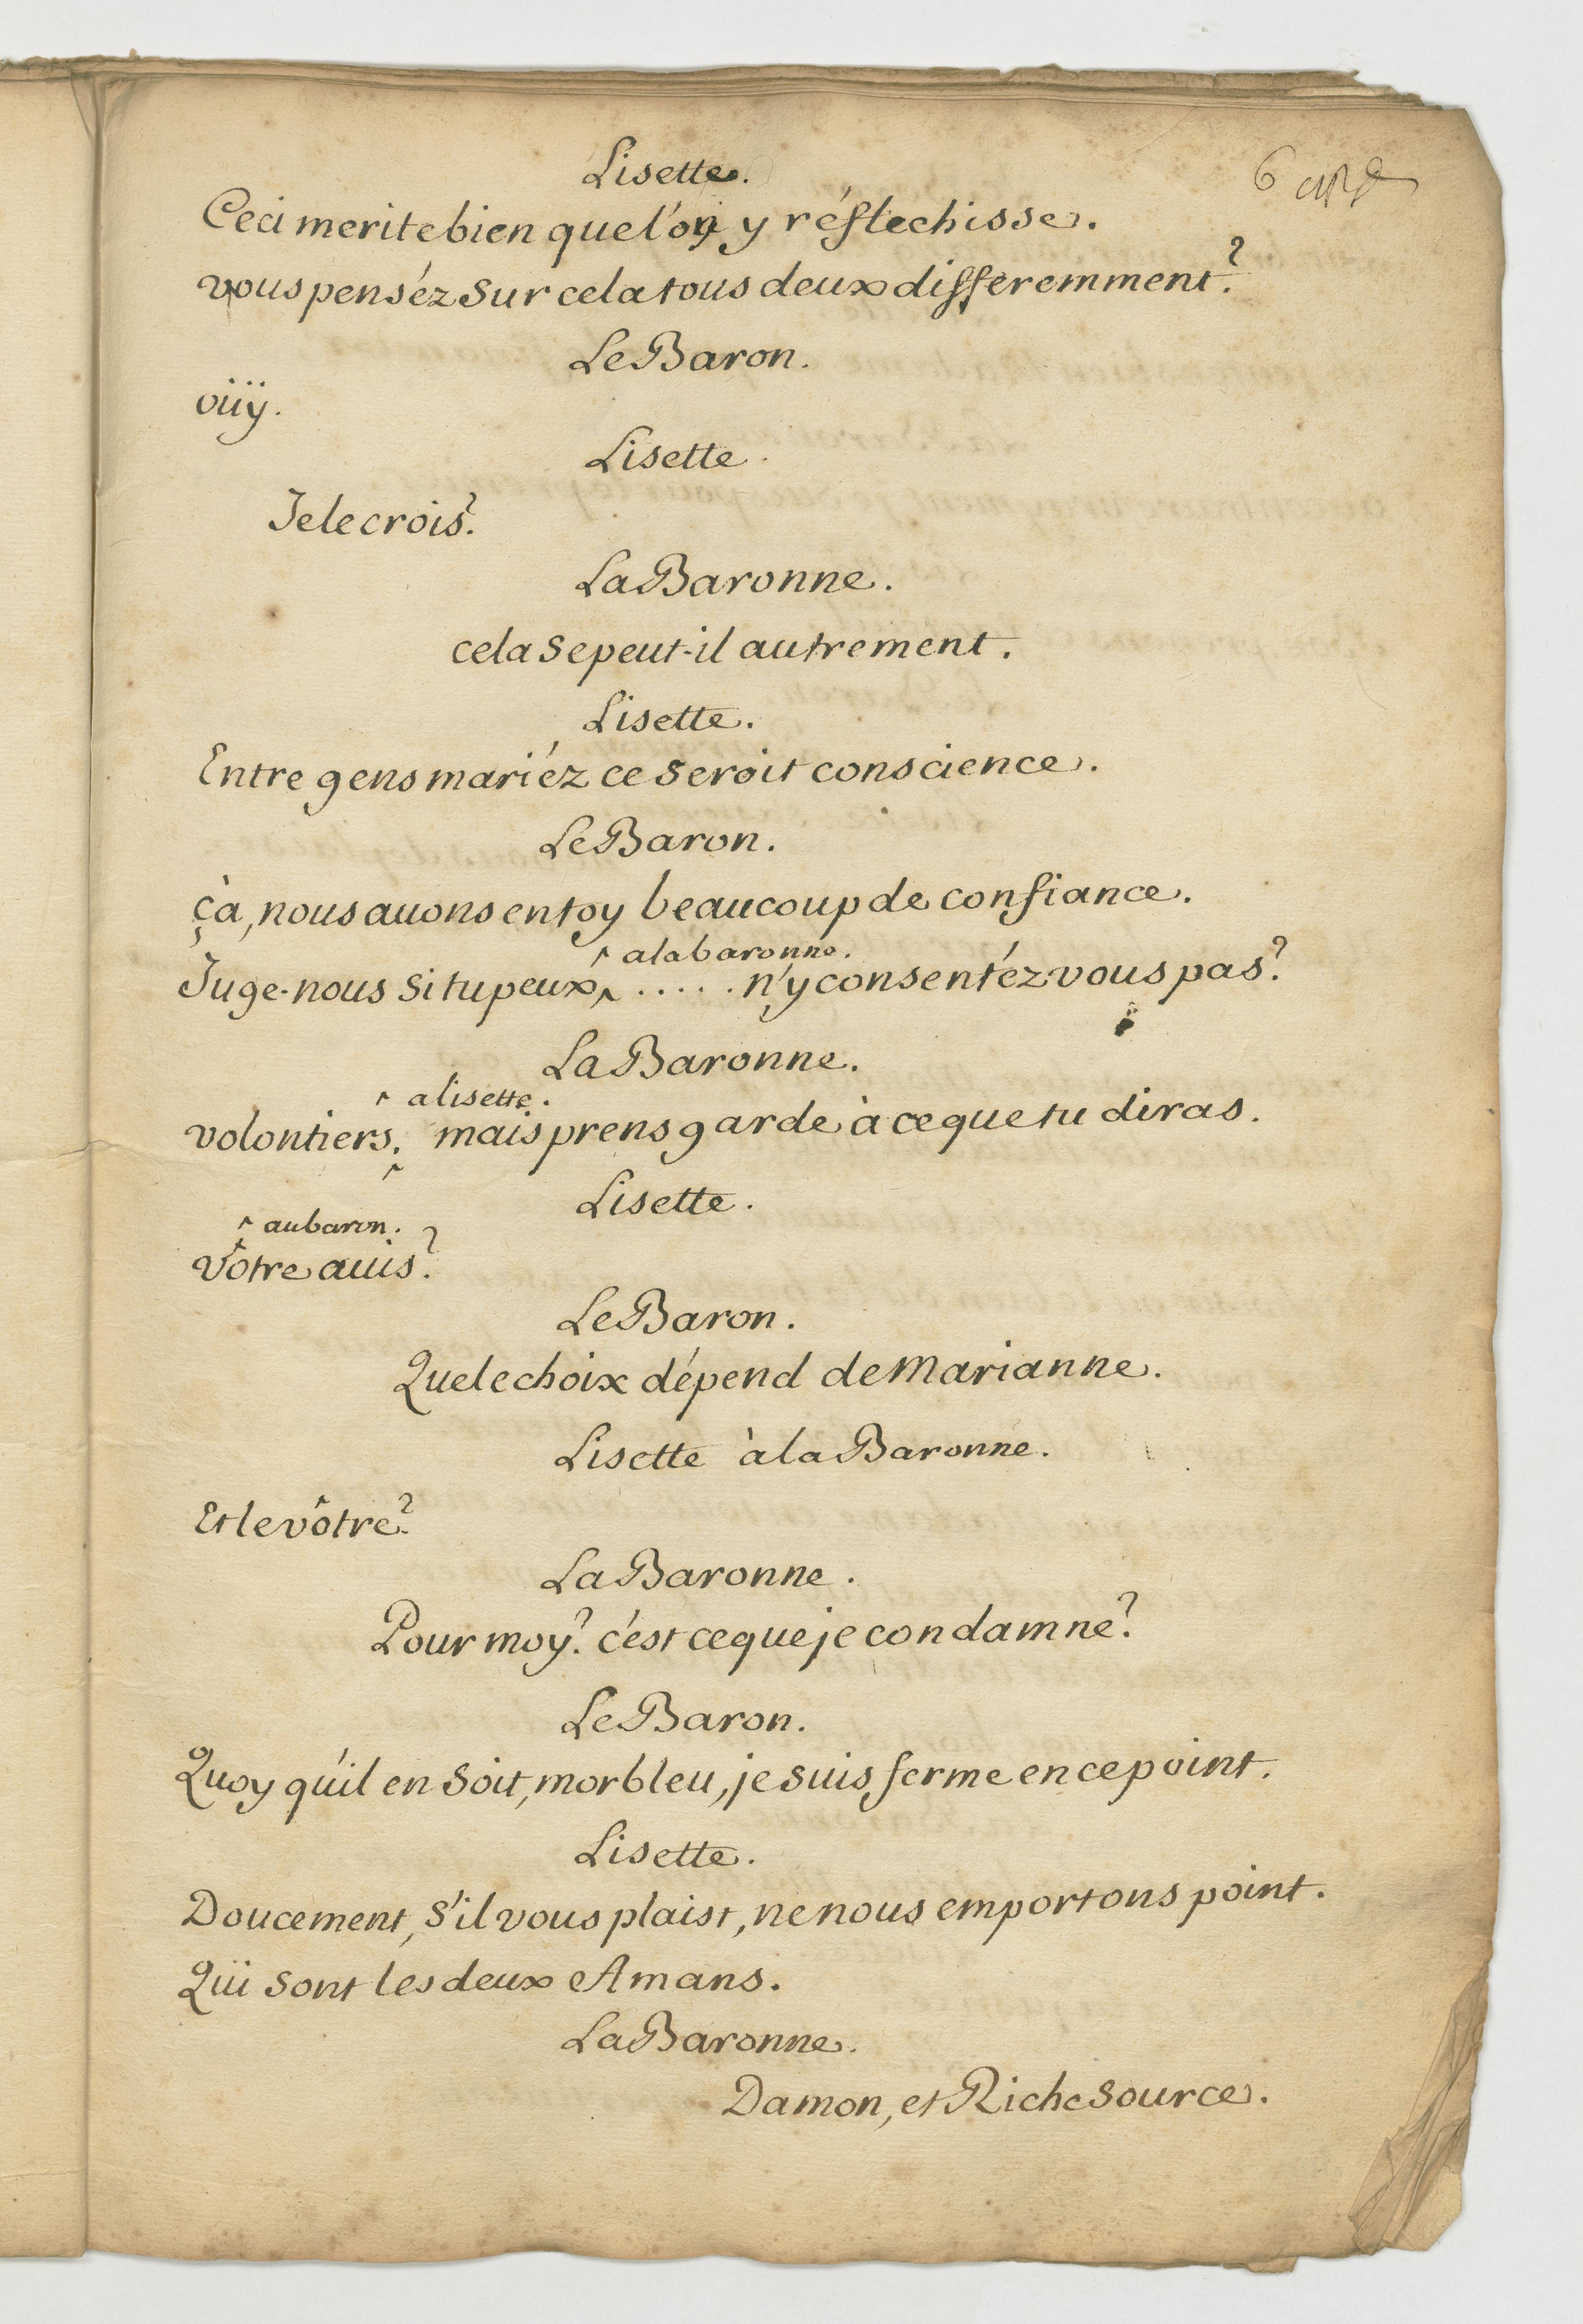 Lisette.
6
Ceci merite bien que l'on y réflechisse.
vous penséz sur cela tous deux differemment?
Le Baron.
oüy.
Lisette.
Je le crois?
La Baronne.
cela se peut-il autrement.
Lisette.
Entre gens mariéz ce seroit conscience.
Le Baron.
çà, nous auons en toy beaucoup de confiance.
^ a la baronne.
Juge-nous si tu peux, ^ ..... n'y consentéz vous pas?
La Baronne.
^ a lisette.
volontiers. ^ mais prens garde à ce que tu diras.
Lisette.
^ au baron.
Vôtre auis?
Le Baron.
Que le choix dépend de Marianne.
Lisette à la Baronne.
Et le vôtre?
La Baronne.
Pour moy? c'est ce que je condamne?
Le Baron.
Quoy qu'il en soit, morbleu, je suis ferme en ce point.
Lisette.
Doucement, s'il vous plaist, ne nous emportons point.
Qüi sont les deux Amans.
La Baronne.
Damon, et Richesource.